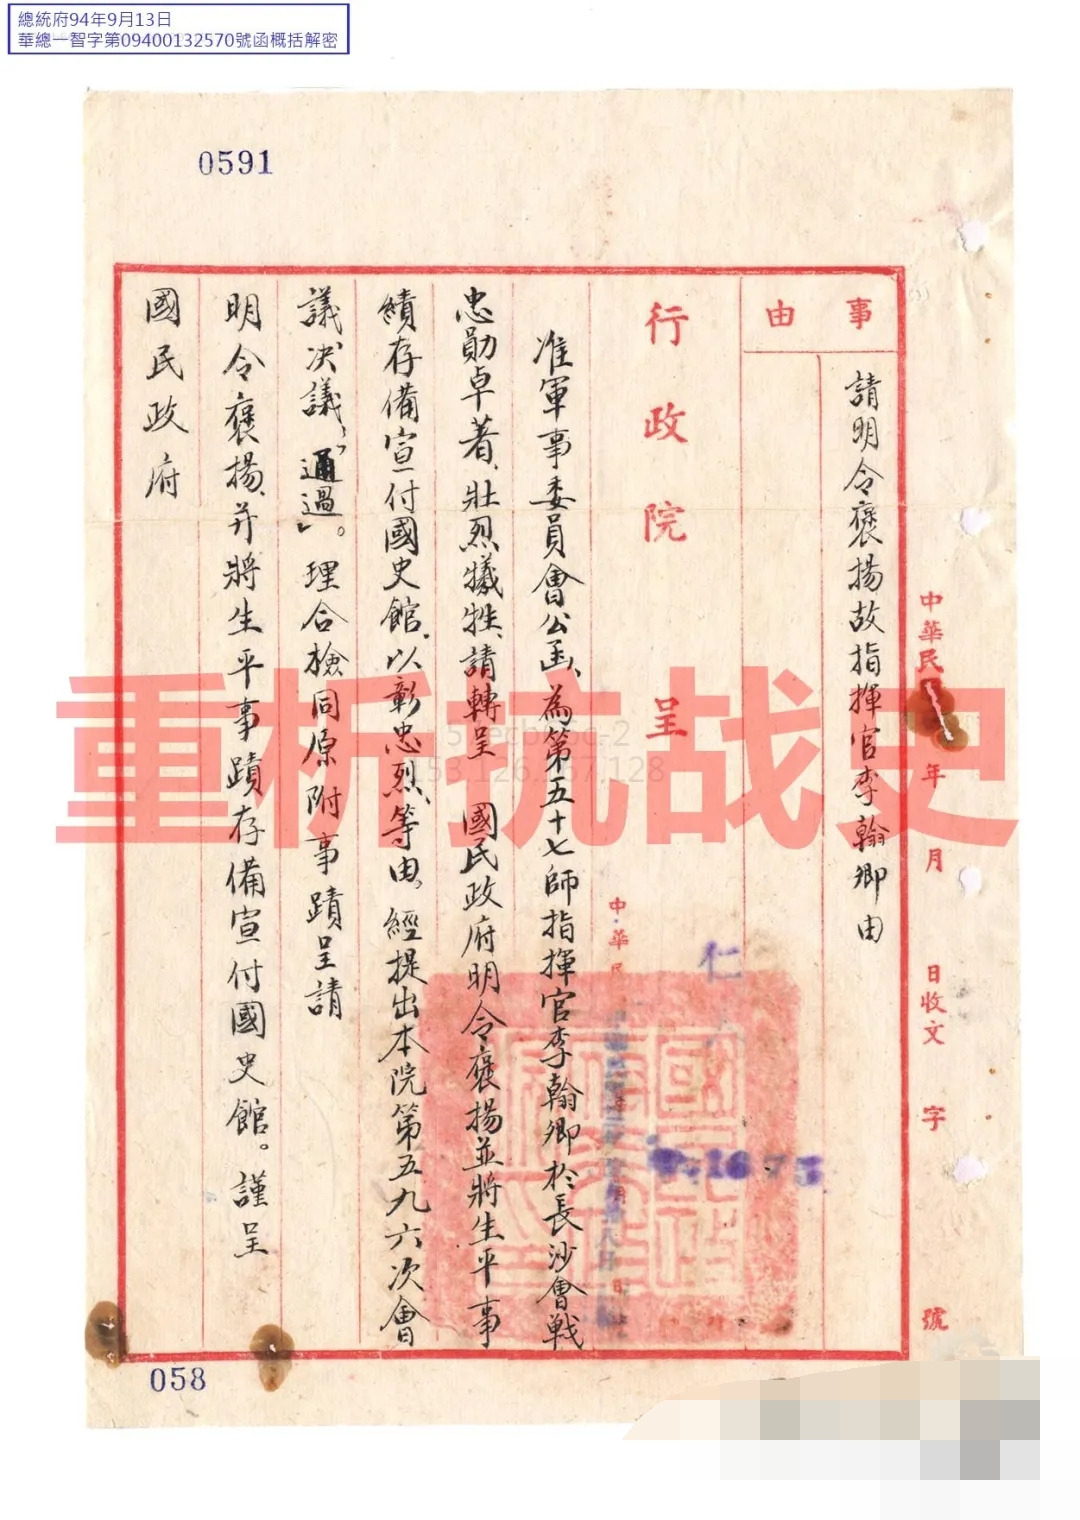 總統府94年9月13日
華總一智字第09400132570號函概括解密
0591
中華民 年 月 日收文 字 號
事由
請明令褒揚故指揮官李翰卿由
行政院 呈
仁
中華民
準軍事委員會公函、為第五十七師指揮官李翰卿於長沙會戰
忠勛卓著、壯烈犧牲、請轉呈 國民政府明令褒揚並將生平事
績存備宣付國史館、以彰忠烈、等由。經提出本院第五九六次會
議決議、「通過」。理合檢同原附事蹟呈請
明令褒揚、并將生平事蹟存備宣付國史館。謹呈
國民政府
058
重析抗战史